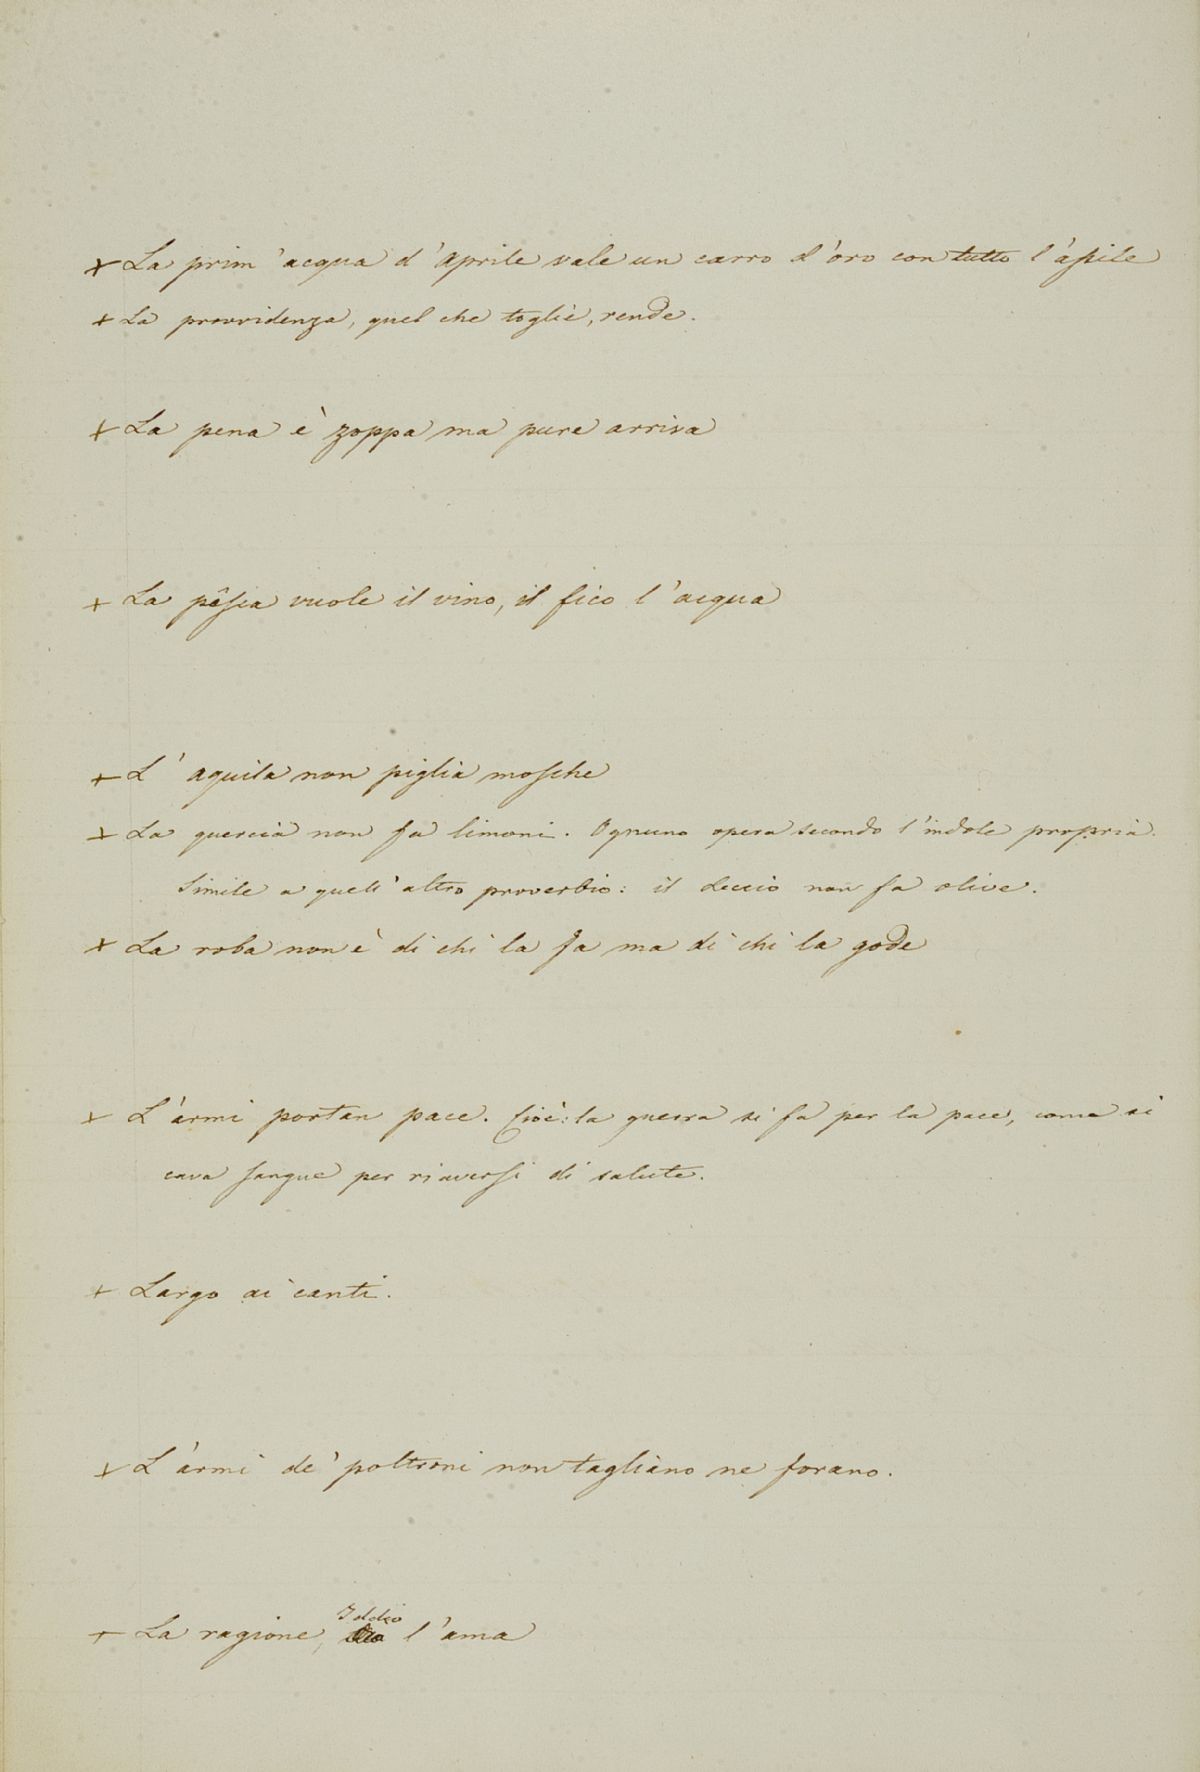 + La prim'acqua d'Aprile vale un carro d'oro con tutto l'assile
+ La provvidenza, quel che toglie, rende.
+ La pena è zoppa ma pure arriva
+ La pêsca vuole il vino, il fico l'acqua
+ L'aquila non piglia mosche
+ La quercia non fa limoni. Ognuno opera secondo l'indole propria.
Simile a quell'altro proverbio: il leccio non fa olive.
+ La roba non è di chi la fa ma di chi la gode
+ L'armi portan pace. Cioè: la guerra si fa per la pace, come si
cava sangue per riaversi di salute.
+ Largo ai canti.
+ L'armi de' poltroni non tagliano ne forano.
+ La ragione, Iddio l'ama